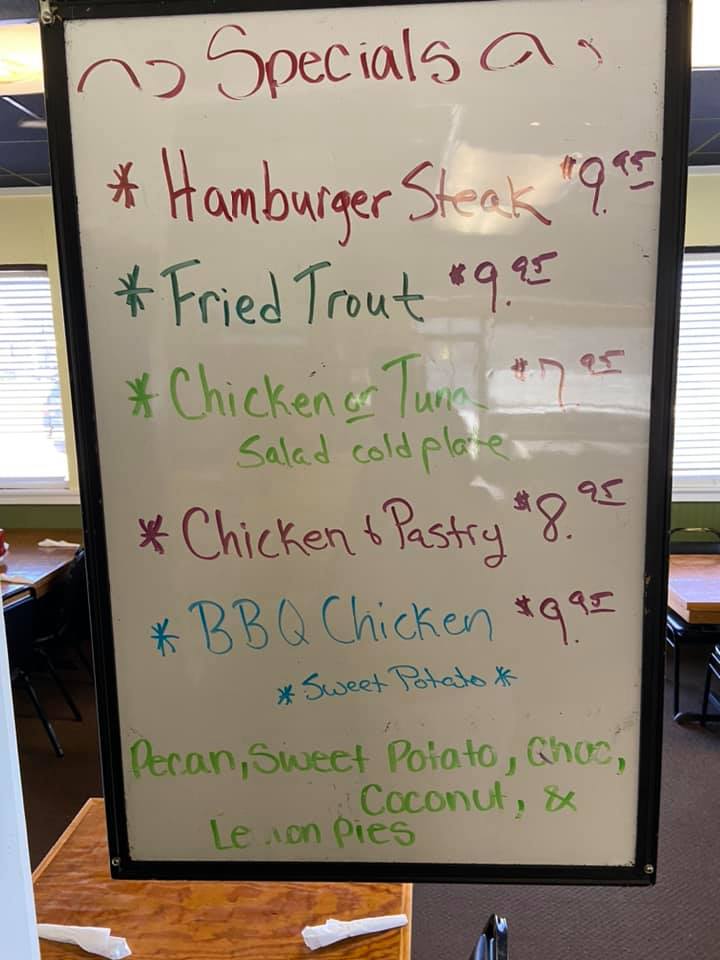 Specials
* Hamburger Steak $9.95
* Fried Trout $9.95
* Chicken or Tuna $7.95
Salad cold plate
* Chicken & Pastry $8.95
* BBQ Chicken $9.95
* Sweet Potato *
Pecan, Sweet Potato, Choc,
Coconut, &
Lemon Pies